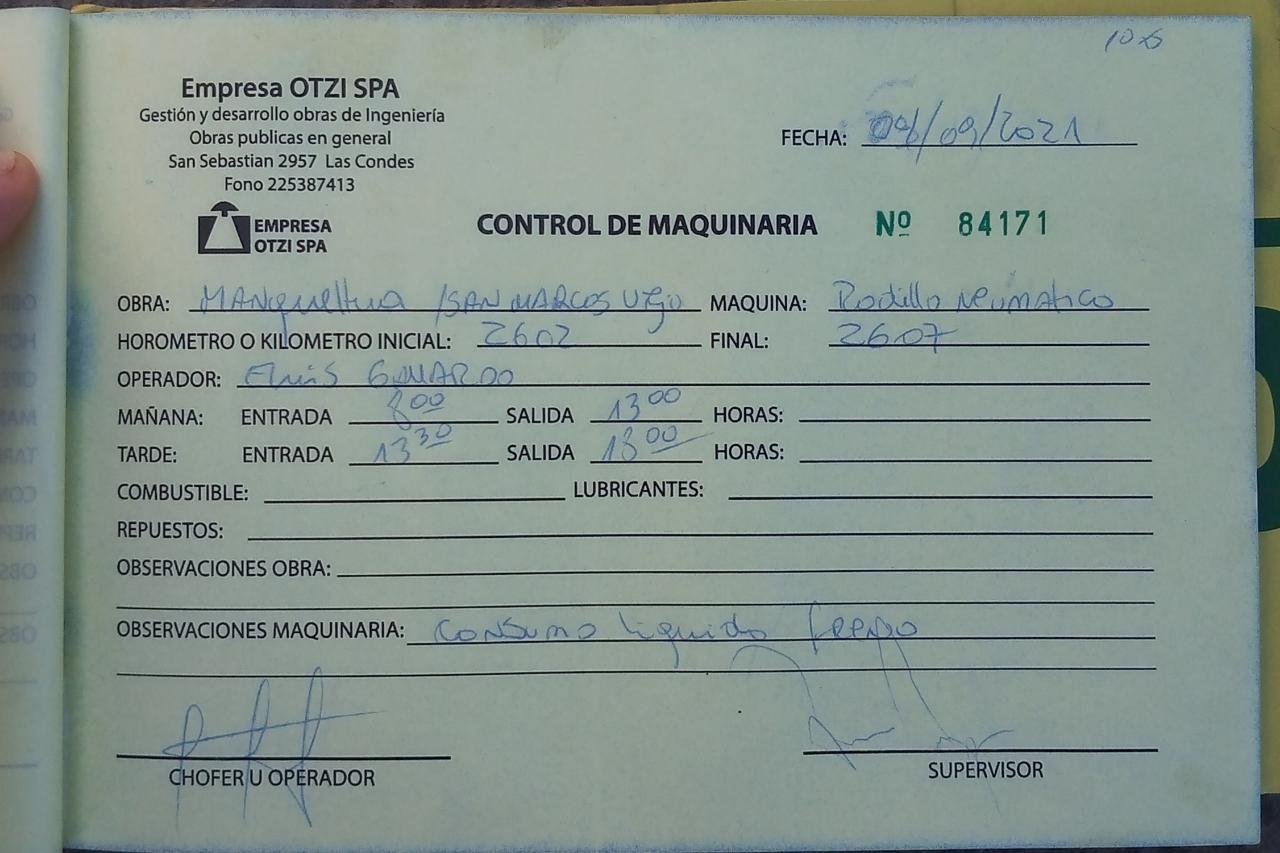 Empresa OTZI SPA
Gestión y desarrollo obras de Ingeniería
Obras publicas en general
San Sebastian 2957 Las Condes
Fono 225387413
FECHA: 09/09/2021
EMPRESA
OTZI SPA
CONTROL DE MAQUINARIA Nº 84171
OBRA: /SAN MARCOS MAQUINA: Rodillo Neumatico
HOROMETRO O KILOMETRO INICIAL: 2602 FINAL: 2607
OPERADOR:
MAÑANA: ENTRADA 8 00 SALIDA 13 00 HORAS:
TARDE: ENTRADA 13 30 SALIDA 18 00 HORAS:
COMBUSTIBLE: LUBRICANTES:
REPUESTOS:
OBSERVACIONES OBRA:
OBSERVACIONES MAQUINARIA: Consumo liquido freno
CHOFER U OPERADOR
SUPERVISOR